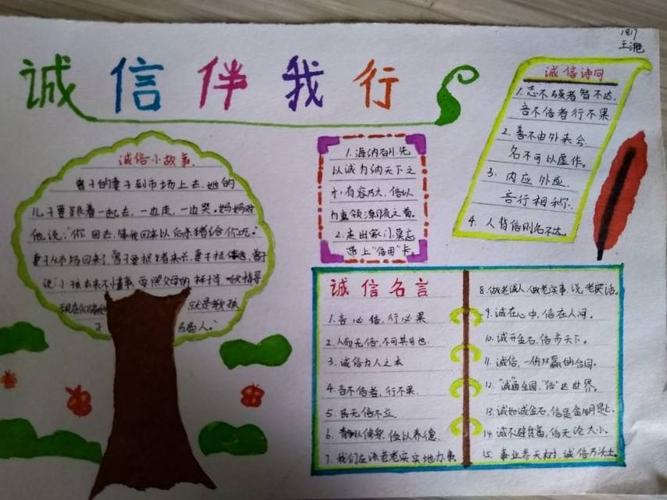 1817
王滟
诚信伴我行
诚信小故事
曾子的妻子到市场上去,她的
儿子要跟着一起去,一边走,一边哭。妈妈对
他说:"你回去,等我回来以后杀猪给你吃。"
妻子从市场回来了,曾子要捉猪来杀,妻子拦
说:"小孩
就是教孩
子 为人。"
1.海内存
以诚为纳天下之
才,有容乃大,信以
2.走出家门莫忘
带上"信用"卡
诚信诗词
1.志不强者智不达,
言不信者行不果
2.善不由外来兮
名不可以虚作。
3.内应外应,
言行相称
4.人背信则名不达
诚信名言
1.言必信,行必果
2.人而无信,不知其可也
3.诚信为人之本
4.言不信者,行不果
5.民无信不立
6.以养德
7.我们应该老老实实地办事
8.做老诚人,做老实事,说老实话。
9.诚在心中,信在人间。
10.诚开金石,信步天下。
11.诚信,一份双赢的合同。
12."诚"通全国,"信"达世界。
13.诚如诚金石,信是金明
14.诚不避贫富,信无论大小。
15.事业参天树,诚信乃沃土